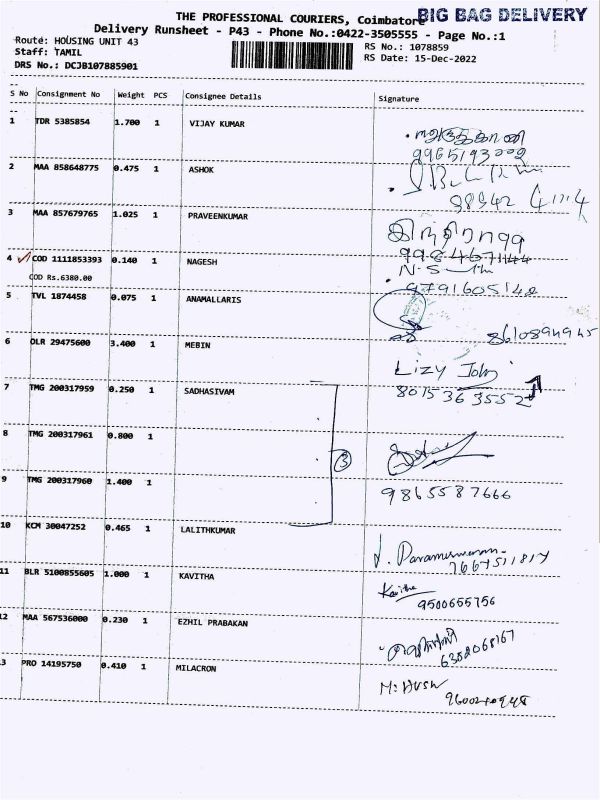 THE PROFESSIONAL COURIERS, Coimbatore BIG BAG DELIVERY
Delivery Runsheet - P43 - Phone No.:0422-3505555 - Page No.:1
Route: HOUSING UNIT 43 RS No.: 1078859
Staff: TAMIL RS Date: 15-Dec-2022
DRS No.: DCJB107885901
S No Consignment No Weight PCS Consignee Details Signature
1 TDR 5385854 1.700 1 VIJAY KUMAR
9965193002
2 MAA 858648775 0.475 1 ASHOK
3 MAA 857679765 1.025 1 PRAVEENKUMAR
4 COD 1111853393 0.140 1 NAGESH
COD Rs.6380.00
9791605142
5 TVL 1874458 0.075 1 ANAMALLARIS
8610894945
6 OLR 29475600 3.400 1 MEBIN
Lizy John
8015363552
7 TMG 200317959 0.250 1 SADHASIVAM
8 TMG 200317961 0.800 1
3
9 TMG 200317960 1.400 1
9865587666
10 KCM 30047252 0.465 1 LALITHKUMAR
11 BLR 5100855605 1.000 1 KAVITHA
Kavitha
9500655756
12 MAA 567536000 0.230 1 EZHIL PRABAKAN
6382068167
13 PRO 14195750 0.410 1 MILACRON